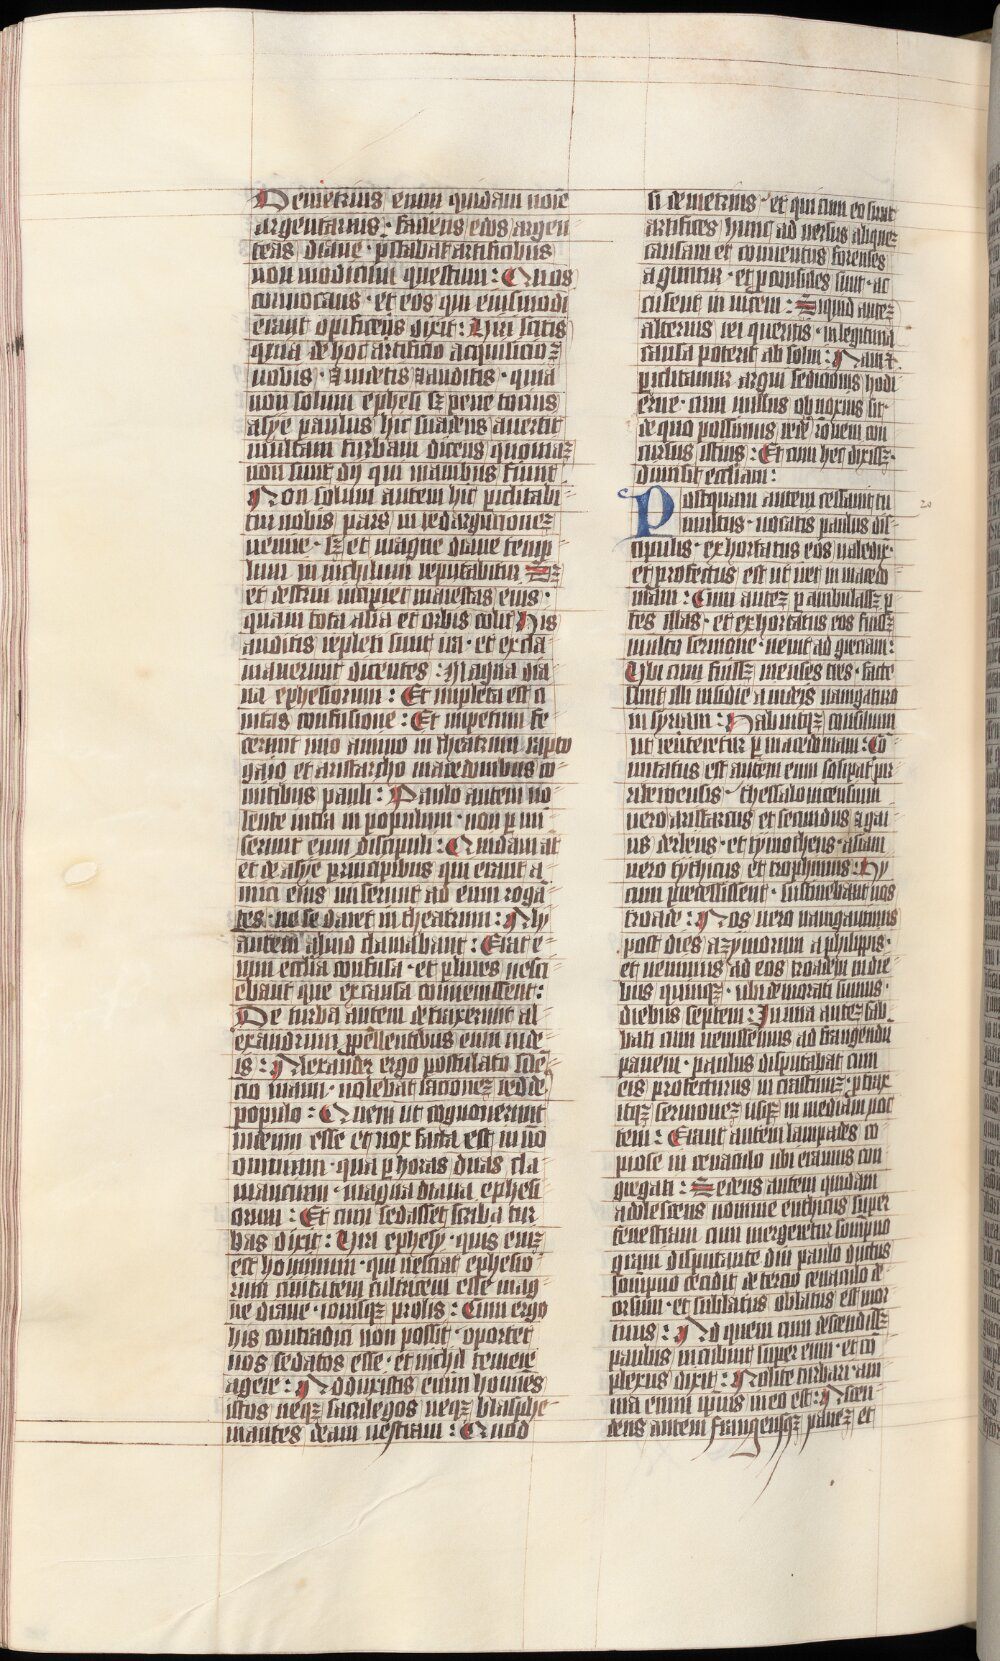 Demetrius enim quidam noīe
argentarius· faciens edes argen
teas diane· p̄stabat artificibus
non modicum questum: Quos
convocans· et eos qui eiusmodi
erant opifices dixit: Viri scitis
quia de hoc artificio acquisicio
nobis· et videtis et auditis· quia
non solum ephesi sꝫ pene tocius
asye paulus hic suadens avertit
multam turbam dicens quoniaꝫ
non sunt dij qui manibus fiunt
Non solum autem hic piclitabi
tur nobis pars in redargucioneꝫ
venire· sꝫ et magne diane temp
lum in nichilum reputabitur Sꝫ
et destrui incipiet maiestas eius·
quam tota asia et orbis colit His
auditis repleti sunt ira· et excla
maverunt dicentes: Magna dia
na ephesiorum: Et impleta est ci
vitas confusione: Et impetum fe
cerunt uno animo in theatrum rapto
gayo et aristarcho macedonibus co
mitibus pauli: Paulo autem vo
lente intra in populum· non p̱ mi
serunt eum discipuli: Quidam aūt
et de asye principibus qui erant a
mici eius miserunt ad eum rogā
tes· ne se daret in theatrum: Alij
autem aliud clamabant: Erat e
nim ecclīa confusa· et plures nesci
ebant qua ex causa convenissent:
De turba autem detraxerunt al
exandrum ꝓpellentibus eum iude
is: Alexander ergo postulato silē
cio manu· volebat racioneꝫ redde
populo: Quem ut cognoverunt
iudeum esse et vox facta est una
omnium· quia p̱ horas duas cla
mancium· magna diana ephesi
orum: Et cum sedasset scriba tur
bas dixit: Viri ephesy· quis eniꝫ
est hominum· qui nesciat ephesio
rum civitatem cultricem esse mag
ne diane· iovisqꝫ prolis: Cum ergo
his contradici non possit· oportet
vos sedatos esse· et nichil temere
agere: Adduxistis enim homīes
istos neqꝫ sacrilegos neqꝫ blasphe
mantes deam vestram: Quod
si demetrius· et qui cum eo sunt
artifices hunc ad versus aliqueꝫ
causam et conventus forenses
aguntur· et p̱ consules sunt· ac
cusent in vicem: Siquid auteꝫ
alterius rei queritis· in legitima
causa poterit ab solvi: Nam et
piclitamur argui sedicionis hodi
erne· cum nullus obnoxius sit·
de quo possumus redē rōnem con
cursus istius: Et cum hec dixissꝫ·
dimisit eccliam:
Postquam autem cessavit tu 20
multus· vocatis paulus dis
cipulis· exhortatus eos valedix·
et profectus est ut iret in macedo
niam: Cum auteꝫ p̱ ambulassꝫ p̱
tes illas· et exhortatus eos fuissꝫ
multo sermone· venit ad greciam:
Ubi cum fuissꝫ menses tres· facte
sunt illi insidie a iudeis navigaturo
in syriam: Habuitqꝫ consilium
ut reverteretur p̱ macedoniam: Co
mitatus est autem eum sosipat̄ pir
ri beroensis· thessalonicensium
vero aristarcus et secundus et gai
us derbeus· et tymotheus· asiani
vero tythicus et trophimus: Hij
cum precessissent· sustinebant nos
troade: Nos vero navigavimus
post dies azymorum a philippis·
et venimus ad eos troadem in die
bus quinqꝫ· ubi demorati sumus·
diebus septem: In una auteꝫ sab
bati cum venissemus ad frangendū
panem· paulus disputabat cum
eis profecturus in crastinuꝫ· p̱trax
itqꝫ sermoneꝫ usqꝫ in mediam noc
tem: Erant autem lampades co
piose in cenaculo ubi eramus con
gregati: Sedens autem quidam
adolescens nomine euthicus super
fenestram cum mergeretur sompno
gravi disputante diu paulo ductus
sompno cecidit de tercio cenaculo de
orsum· et sublatus oblatus est mor
tuus: Ad quem cum descendissꝫ
paulus incubuit super eum· et cō
plexus dixit: Nolite turbari· ani
ma enim ipsius in eo est: Ascen
dens autem frangensqꝫ paneꝫ et